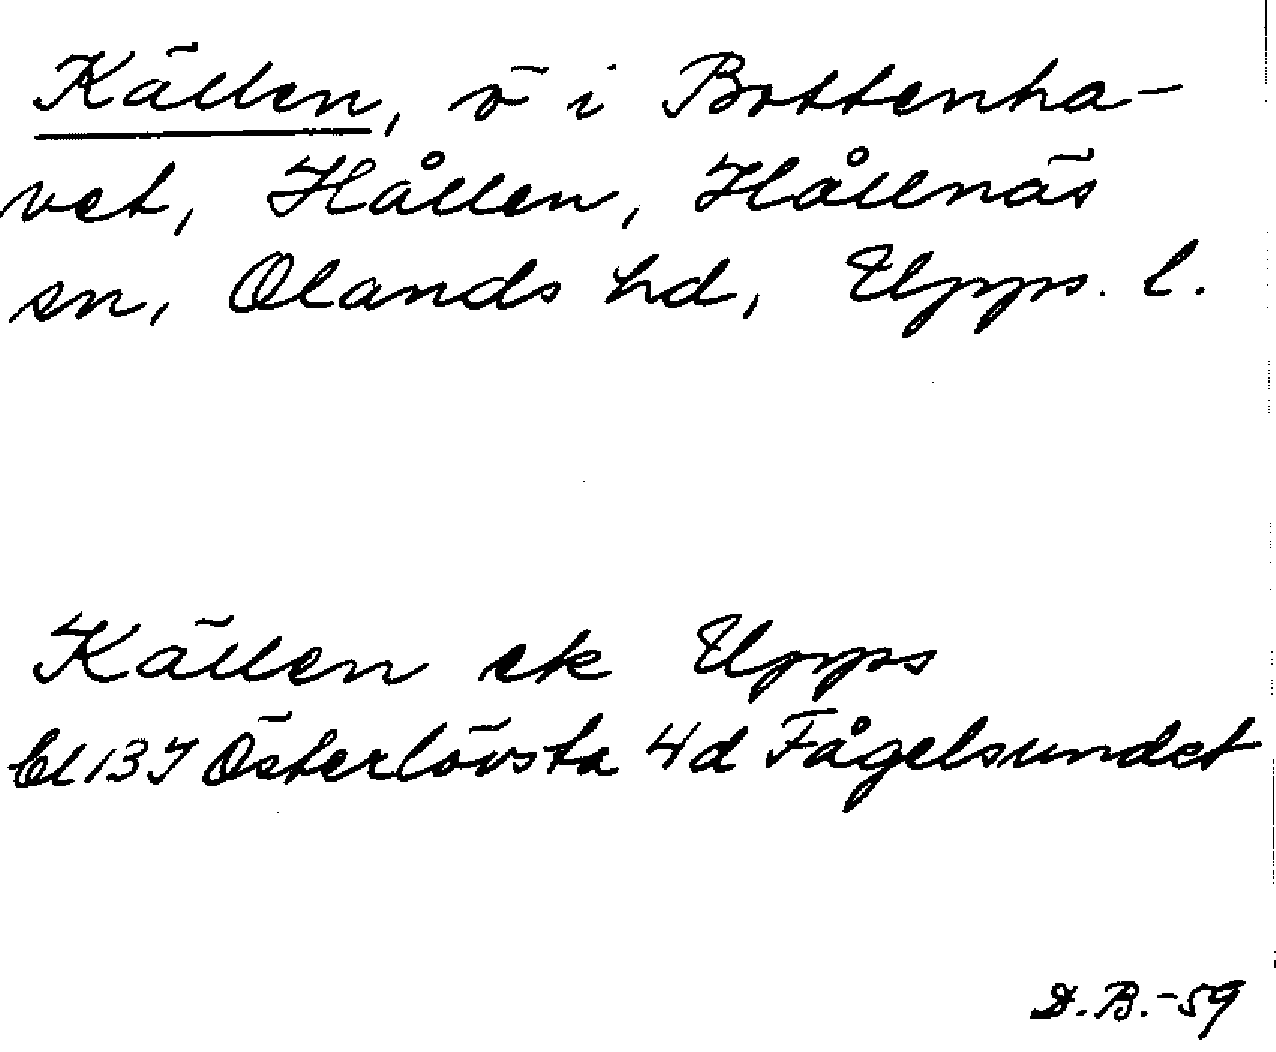 Källen, ö i Bottenha-
vet, Hållen, Hållnäs
sn, Olands hd, Upps. l.
Källen ek Upps
bl 137 Österlövsta 4d Fågelsundet
D.B.-59